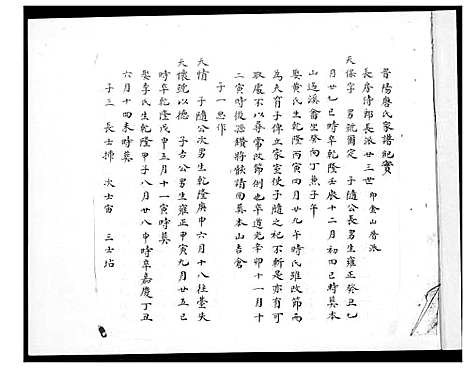 晋陽唐氏家譜紀實
長房諱郎長派廿三世 即金山房派
天保字 男號爾定 子隨公長男生雍正癸丑七
月廿七巳時卒乾隆壬辰十二月初四巳時葬本
山過溪畬坐癸向丁兼子午
娶黃氏生乾隆丙寅四月廿九午時氏雖改節而
為夫育子俾立家室使子隨之祀不斬是亦有可
取處不以尋常改節例也卒道光辛卯十一月十
二寅時後孫纘將骸請回葬本山吉倉
子一思作
天情 子隨公次男生乾隆庚申六月十八往臺失
天懷號以德 子古公男生雍正甲寅九月廿五巳
時卒乾隆戊申三月十一寅時葬
娶李氏生乾隆甲子八月廿八申時卒嘉慶丁丑
六月十四未時葬
子三 長士擇 次士富 三士怗